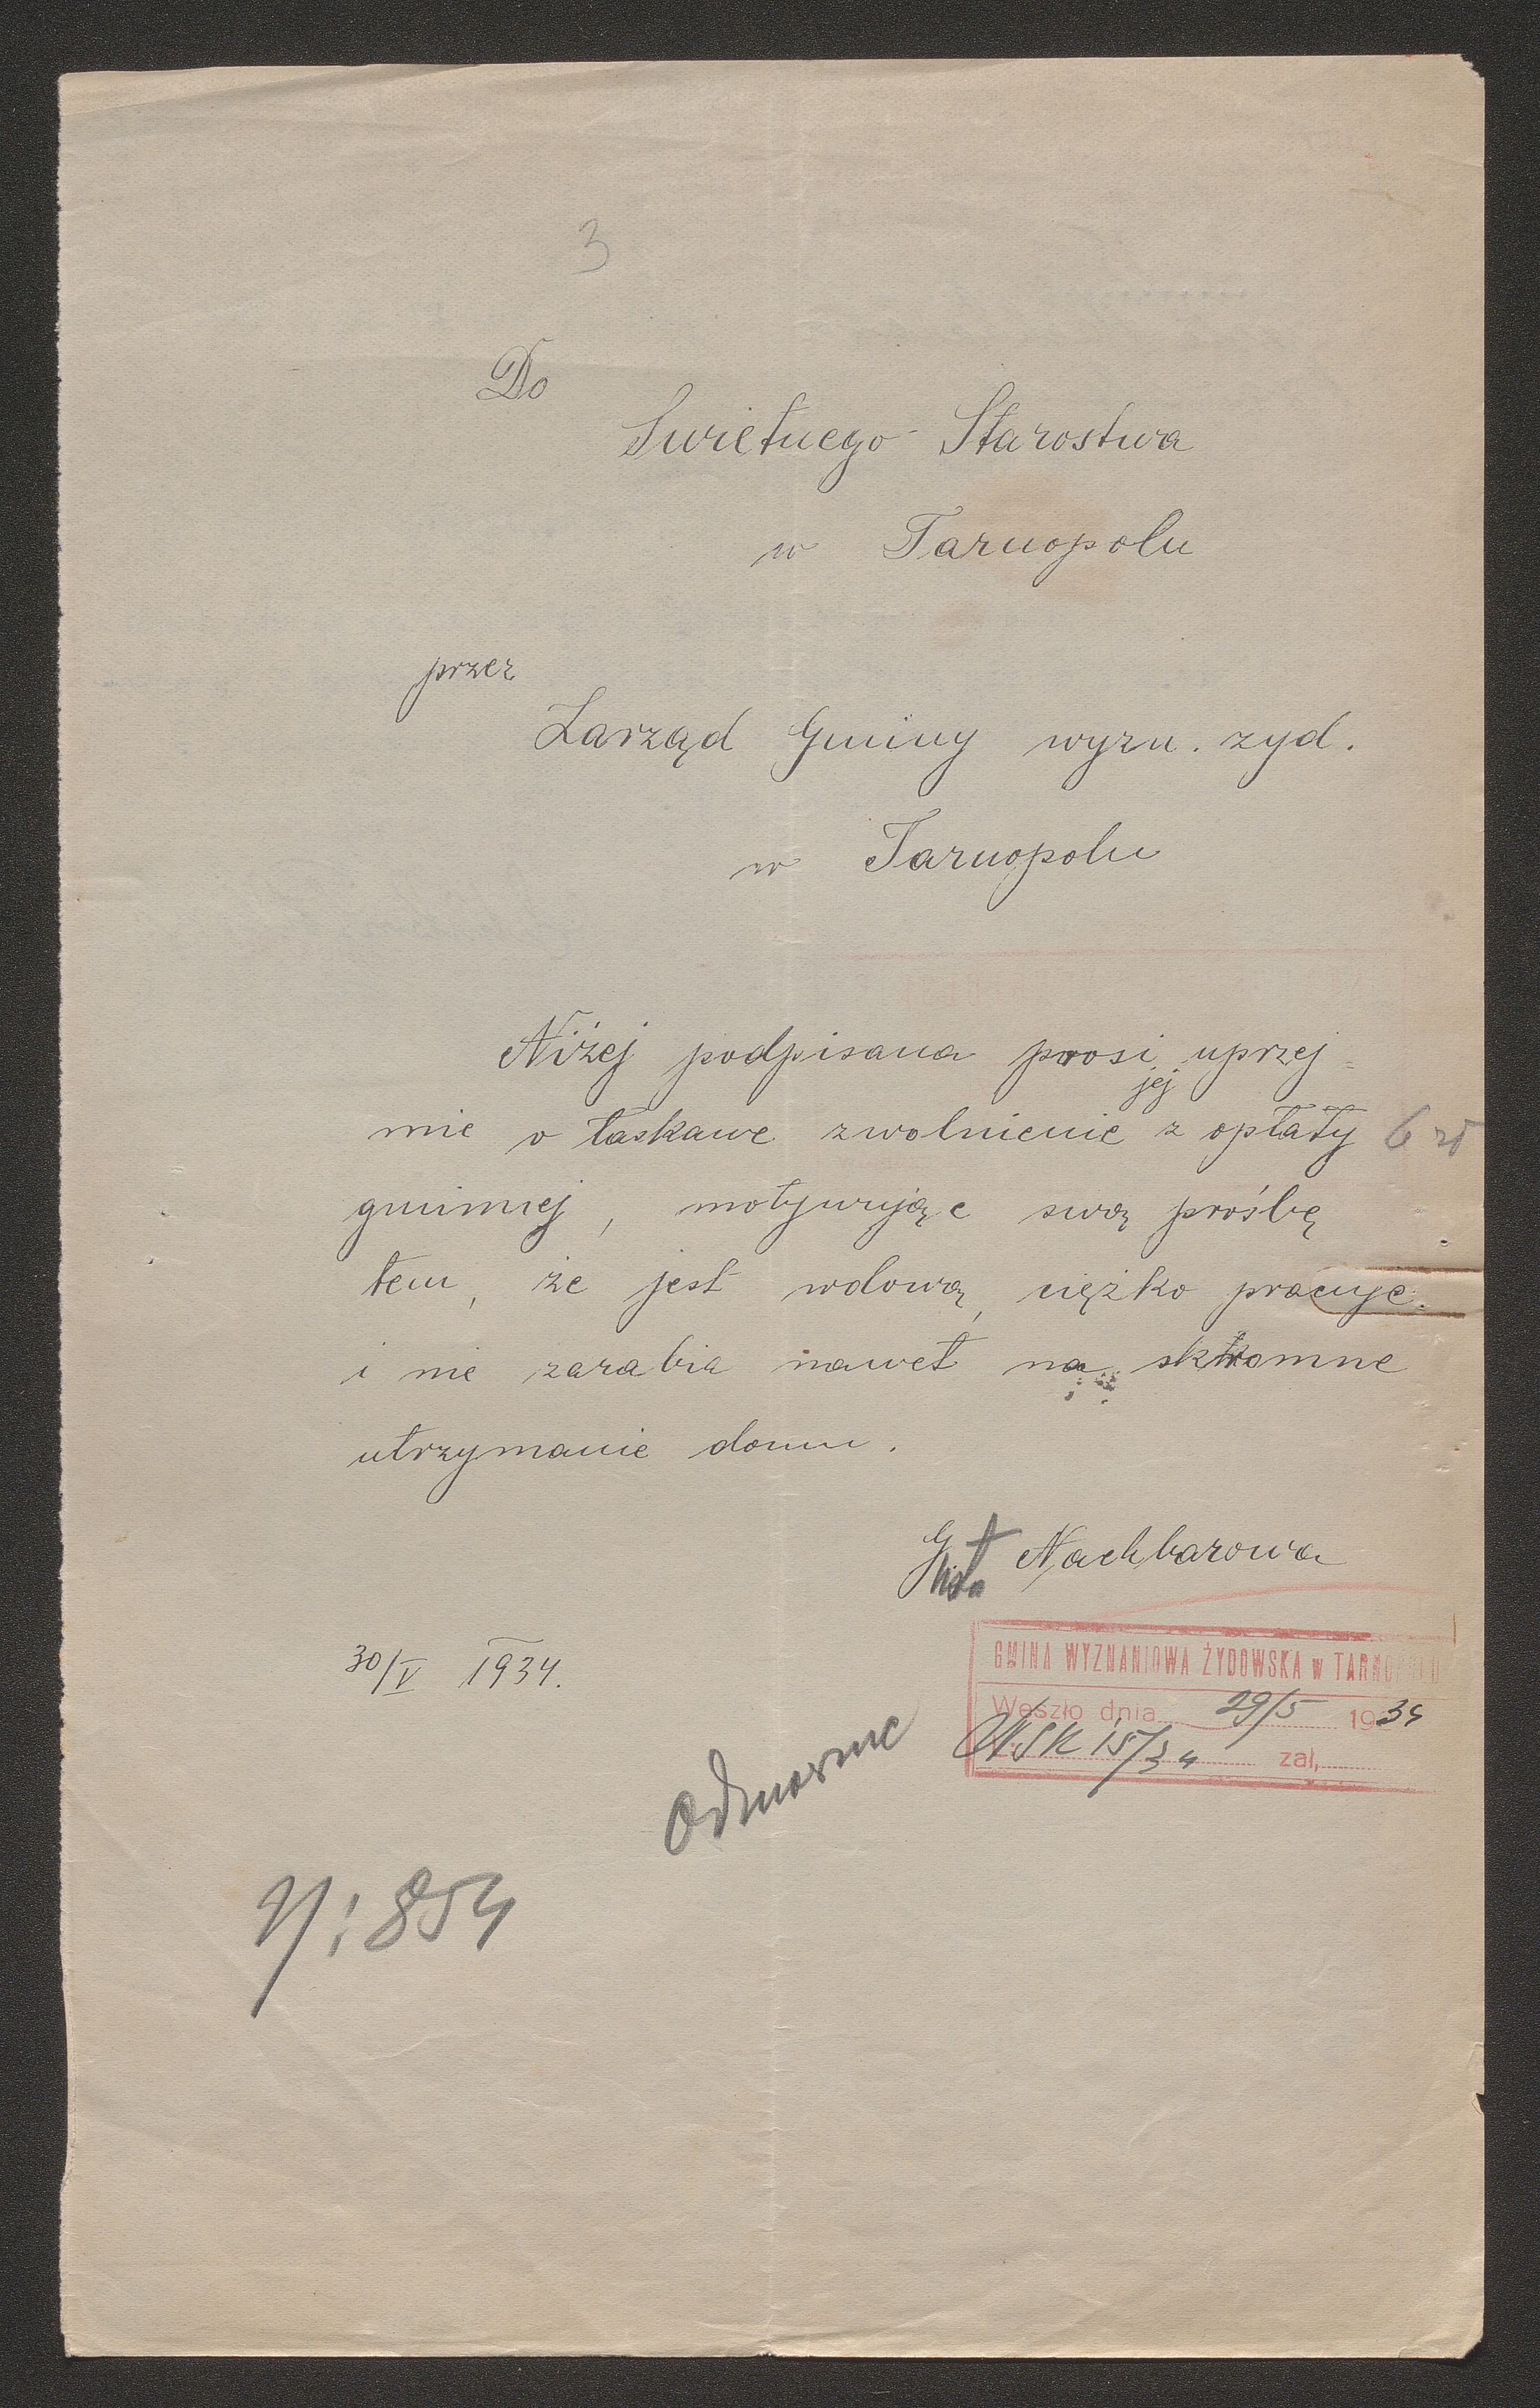 3
Do
Swietnego Starostwa
w Tarnopolu
przez
Zarząd Gminy wyzn. zyd.
w Tarnopolu
Niżej podpisana prosi uprzej-
jej
mie o łaskawe zwolnienie z opłaty 6 zł
gminnej, motywując swą prośbę
tem, że jest wdową, ciężko pracuje.
i nie zarabia nawet na skromne
utrzymanie domu.
Nachbarowa
30/V 1934.
GMINA WYZNANIOWA ŻYDOWSKA w TARNOPOLU
Weszło dnia 29/5 1934
15/34 zał,
Odmowne
854